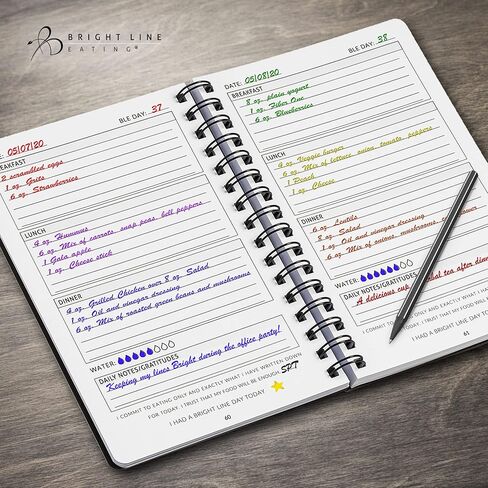 BRIGHT LINE
EATING®
BLE DAY: 37
05/07/20
2 scrambled eggs
1 oz. Grits
6 oz. Strawberries
LUNCH
4 oz. Hummus
6 oz. Mix of carrots, snap peas, bell peppers
1 Gala apple
1 oz. Cheese stick
DINNER
4 oz. Grilled Chicken over 8 oz. Salad
1 oz. Oil and vinegar dressing
6 oz. Mix of roasted green beans and mushrooms
WATER:
DAILY NOTES/GRATITUDES
Keeping my lines Bright during the office party!
I COMMIT TO EATING ONLY AND EXACTLY WHAT I HAVE WRITTEN DOWN
FOR TODAY. I TRUST THAT MY FOOD WILL BE ENOUGH. SPT
I HAD A BRIGHT LINE DAY TODAY
60
BLE DAY: 38
DATE: 05/08/20
BREAKFAST
8 oz. plain yogurt
1 oz. Fiber One
6 oz. Blueberries
LUNCH
4 oz. Veggie burger
6 oz. Mix of lettuce, onion, tomato, peppers
1 Peach
1 oz. Cheese
DINNER
6 oz. Lentils
8 oz. Salad
1 oz. Oil and vinegar dressing
6 oz. Mix of onions, mushrooms,
WATER:
DAILY NOTES/GRATITUDES
A delicious cup tea after
I COMMIT TO EATING ONLY AND EXACTLY WHAT I HAVE
FOR TODAY. I TRUST THAT MY FOOD WILL BE
I HAD A BRIGHT LINE DAY
61